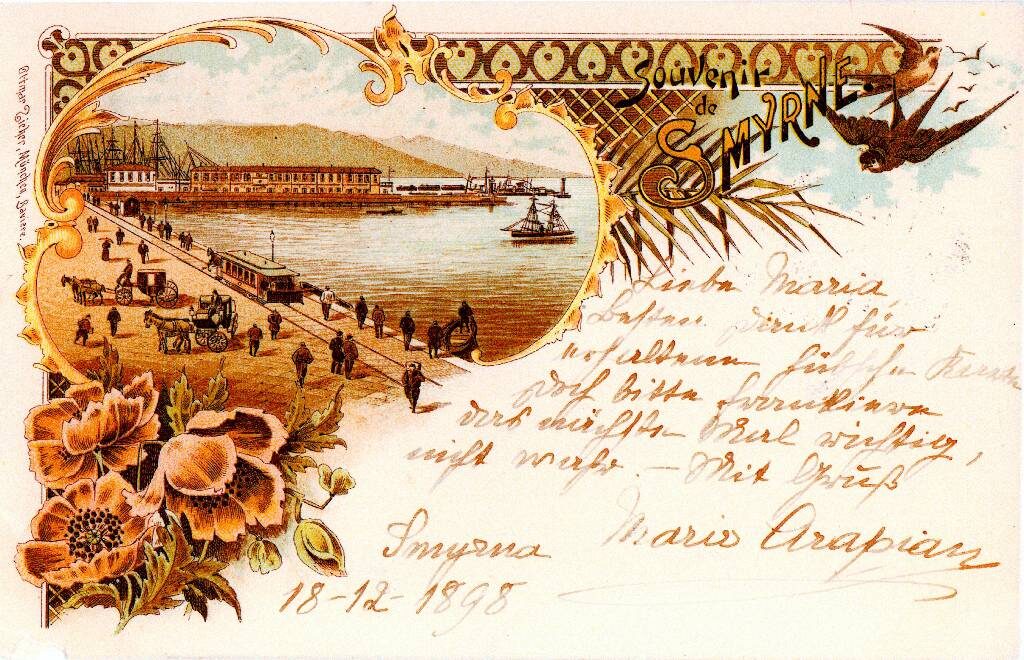 Souvenir
de
SMYRNE.
Ottmar Zieher, München, Bavière.
Liebe Maria,
Besten Dank für
erhaltene hübsche Karte
Doch bitte frankiere
das nächste Mal richtig,
nicht wahr. – Mit Gruß
Marie Arapian
Smyrna
18-12-1898